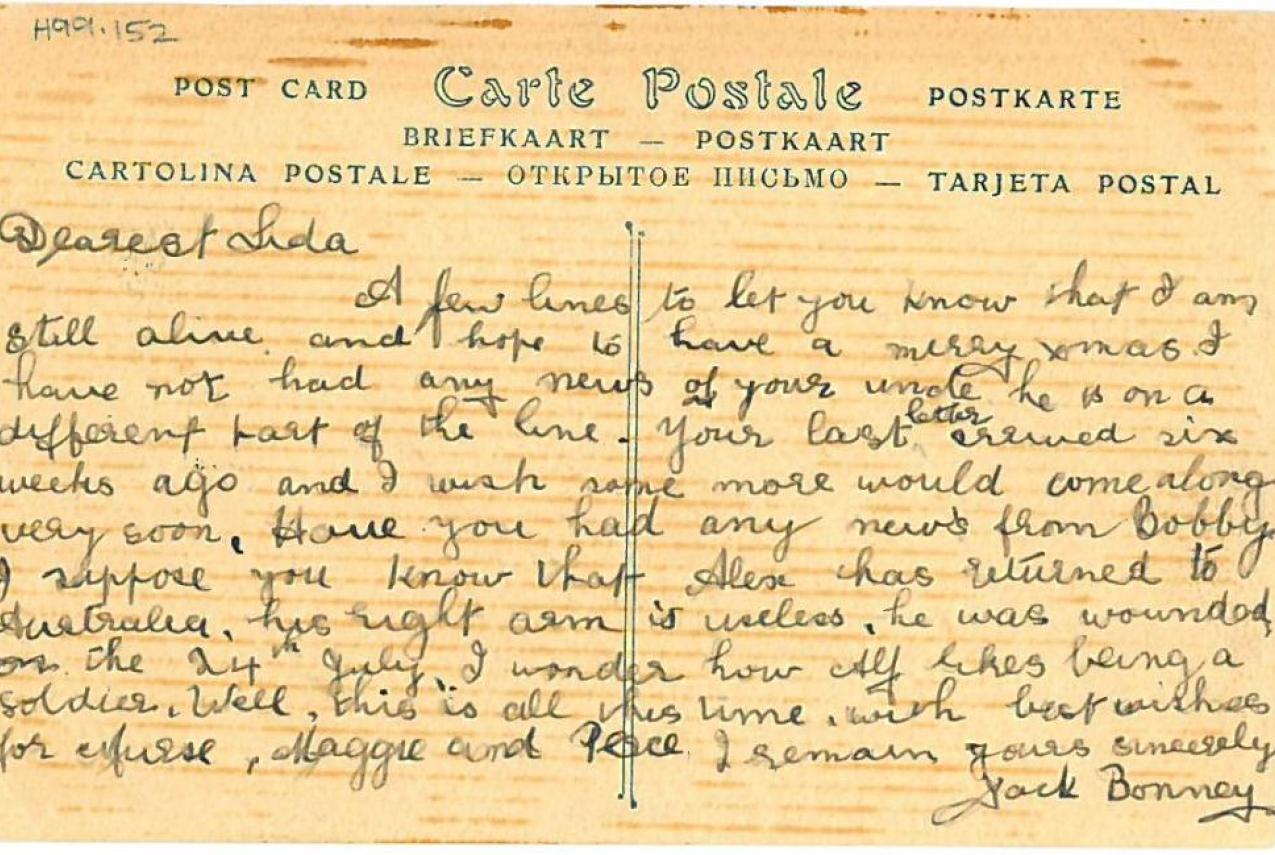 H99.152
POST CARD Carte Postale POSTKARTE
BRIEFKAART — POSTKAART
CARTOLINA POSTALE — ОТКРЫТОЕ ПИСЬМО — TARJETA POSTAL
Dearest Lida
A few lines to let you know that I am
still alive and hope to have a merry xmas. I
have not had any news of your uncle he is on a
different part of the line. Your last letter arrived six
weeks ago and I wish some more would come along
very soon. Have you had any news from Bobby.
I suppose you know that Alex has returned to
Australia, his right arm is useless, he was wounded
on the 24th July. I wonder how Alf likes being a
soldier. Well, this is all this time, with best wishes
for Nurse, Maggie and Perce I remain yours sincerely
Jack Bonney